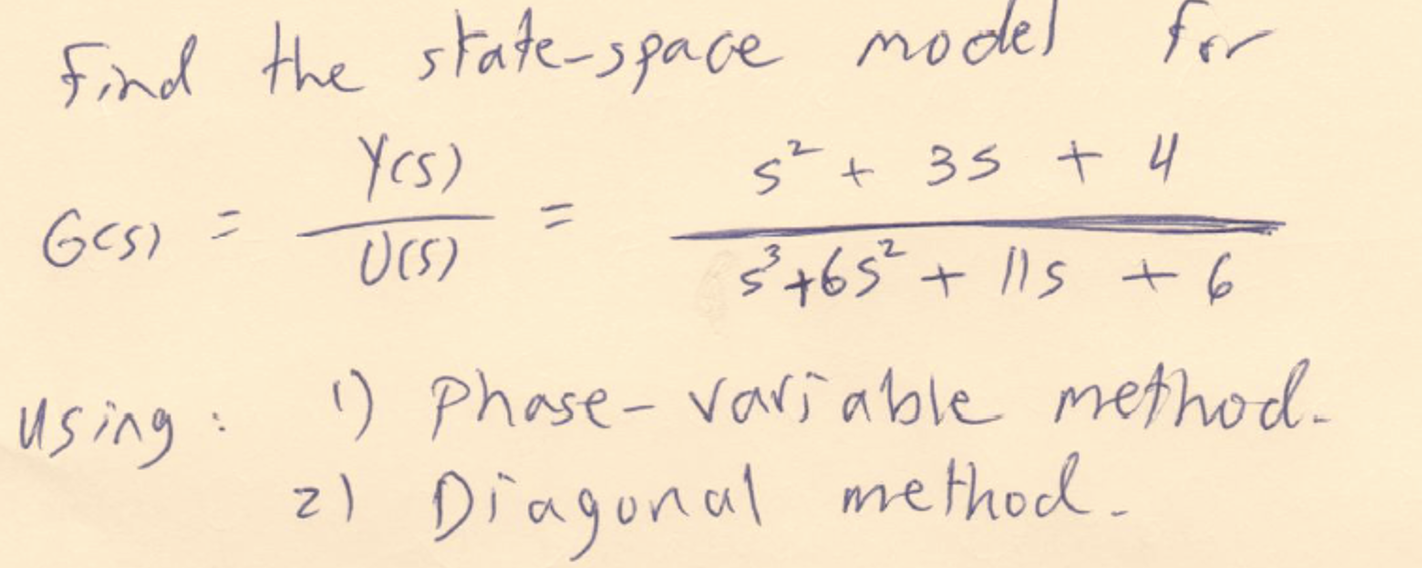 Find the state-space model for
G(s) = Y(s) / U(s) = s² + 3s + 4 / s³+6s² + 11s + 6
Using : 1) Phase-variable method.
2) Diagonal method.